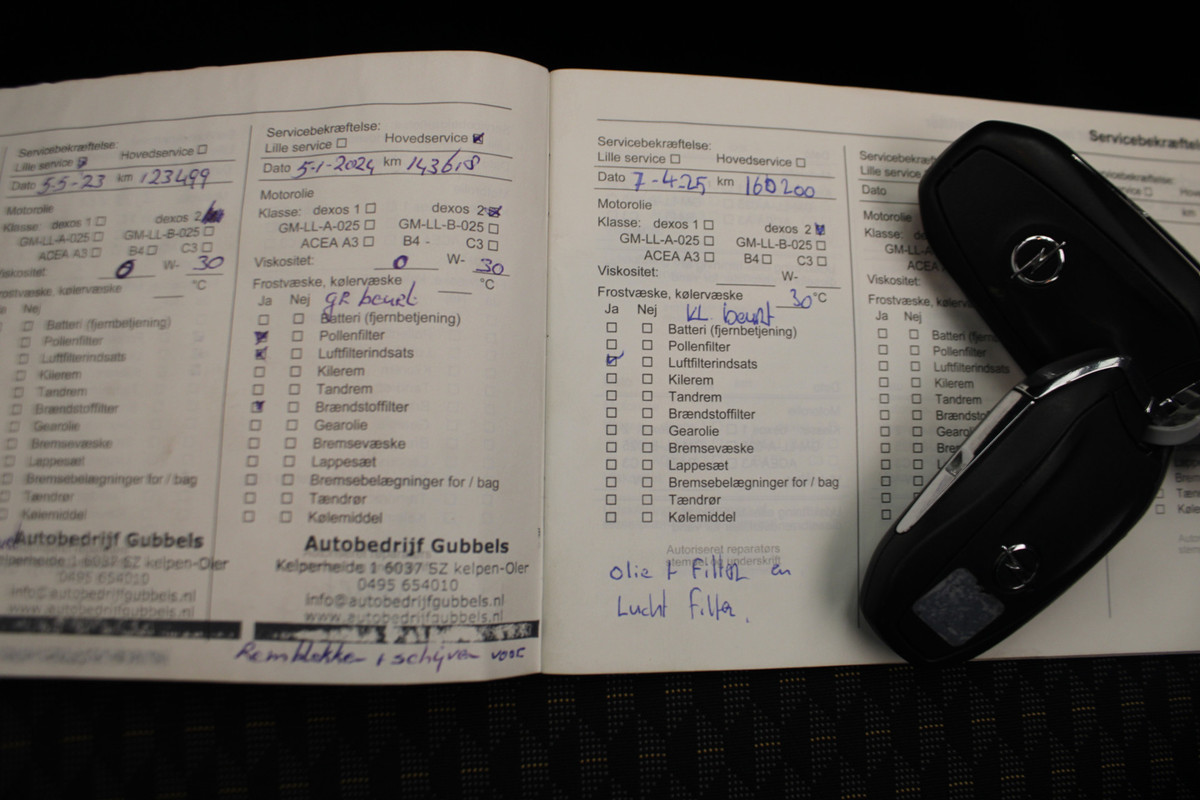 Servicebekræftelse:
Lille service Hovedservice
Dato 5-5-23 km 123499
Motorolie
Klasse: dexos 1 dexos 2
GM-LL-A-025 GM-LL-B-025
ACEA A3 B4 C3
Viskositet: 0 W- 30
Frostvæske, kølervæske °C
Nej
Batteri (fjernbetjening)
Pollenfilter
Luftfilterindsats
Kilerem
Tandrem
Brændstoffilter
Gearolie
Bremsevæske
Lappesæt
Bremsebelægninger for / bag
Tændrør
Kølemiddel
Autobedrijf Gubbels
Kelperheide 1 6037 SZ kelpen-Oler
0495 654010
info@autobedrijfgubbels.nl
www.autobedrijfgubbels.nl
Servicebekræftelse:
Lille service Hovedservice
Dato 5-1-2024 km 143618
Motorolie
Klasse: dexos 1 dexos 2
GM-LL-A-025 GM-LL-B-025
ACEA A3 B4 - C3
Viskositet: 0 W- 30
Frostvæske, kølervæske °C
Ja Nej gr beurt
Batteri (fjernbetjening)
Pollenfilter
Luftfilterindsats
Kilerem
Tandrem
Brændstoffilter
Gearolie
Bremsevæske
Lappesæt
Bremsebelægninger for / bag
Tændrør
Kølemiddel
Autobedrijf Gubbels
Kelperheide 1 6037 SZ kelpen-Oler
0495 654010
info@autobedrijfgubbels.nl
www.autobedrijfgubbels.nl
Remblokken + schijven voor
Servicebekræftelse:
Lille service Hovedservice
Dato 7-4-25 km 160200
Motorolie
Klasse: dexos 1 dexos 2
GM-LL-A-025 GM-LL-B-025
ACEA A3 B4 C3
Viskositet: W-
Frostvæske, kølervæske 30 °C
Ja Nej KL beurt
Batteri (fjernbetjening)
Pollenfilter
Luftfilterindsats
Kilerem
Tandrem
Brændstoffilter
Gearolie
Bremsevæske
Lappesæt
Bremsebelægninger for / bag
Tændrør
Kølemiddel
Autoriseret reparatørs
stempel og underskrift
olie + Filter en
Lucht filter.
Servicebekræftelse
Lille service
Dato
Motorolie
Klasse:
GM-LL-A
ACEA
Viskositet:
Frostvæske
Ja Nej
Batteri
Pollenfilter
Luftfilterindsats
Kilerem
Tandrem
Brændsto
Gearo